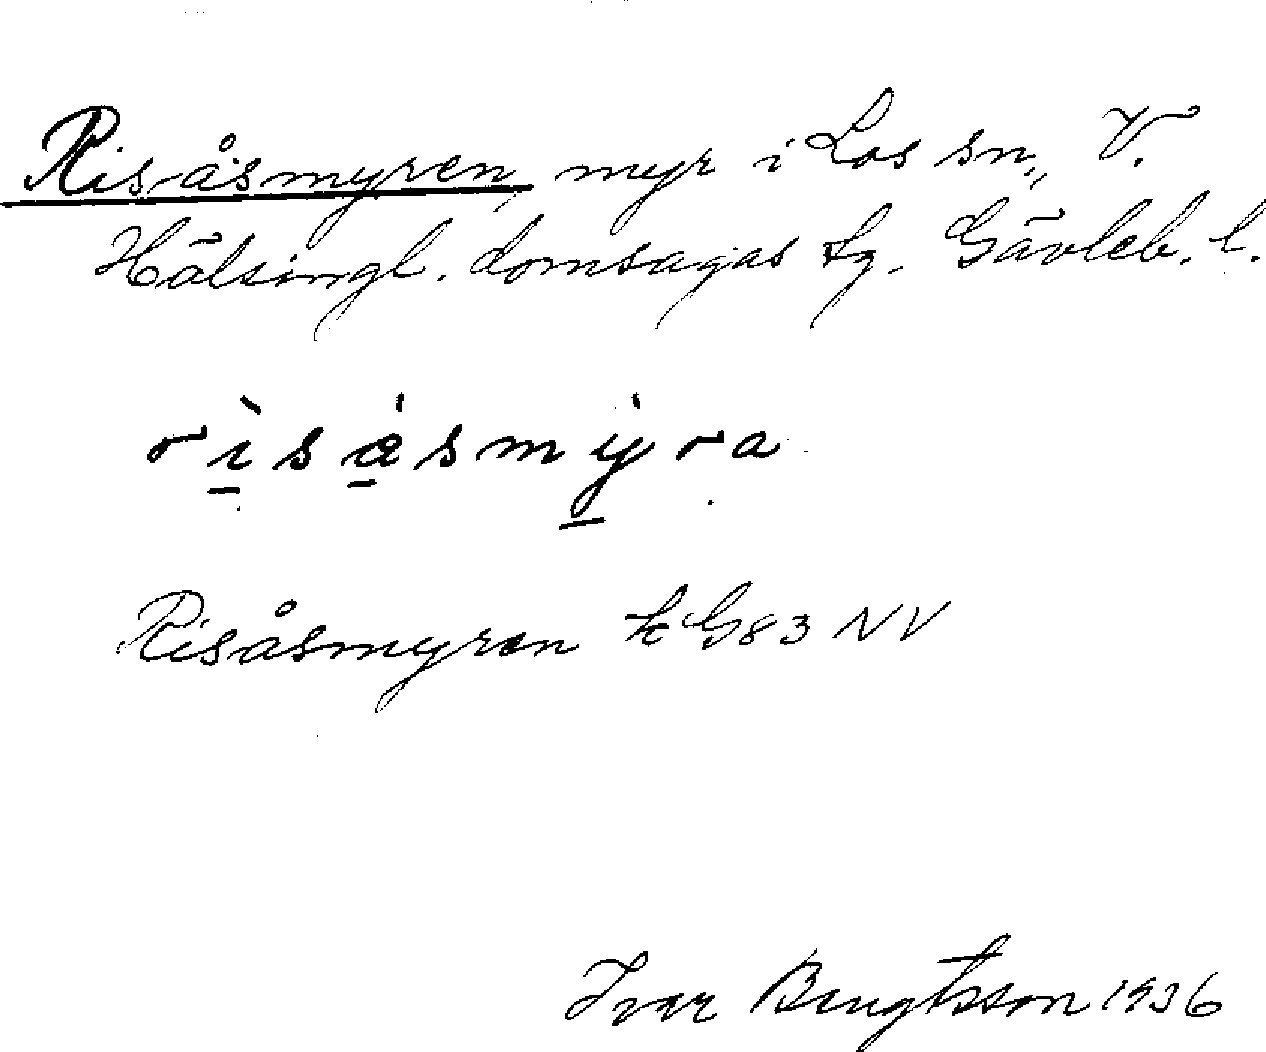 Risåsmyren, myr i Los sn., V.
Hälsingl. domsagas tg, Gävleb. l.
rìsåsmýra
Risåsmyren k G83 NV
Ivar Bengtsson 1936